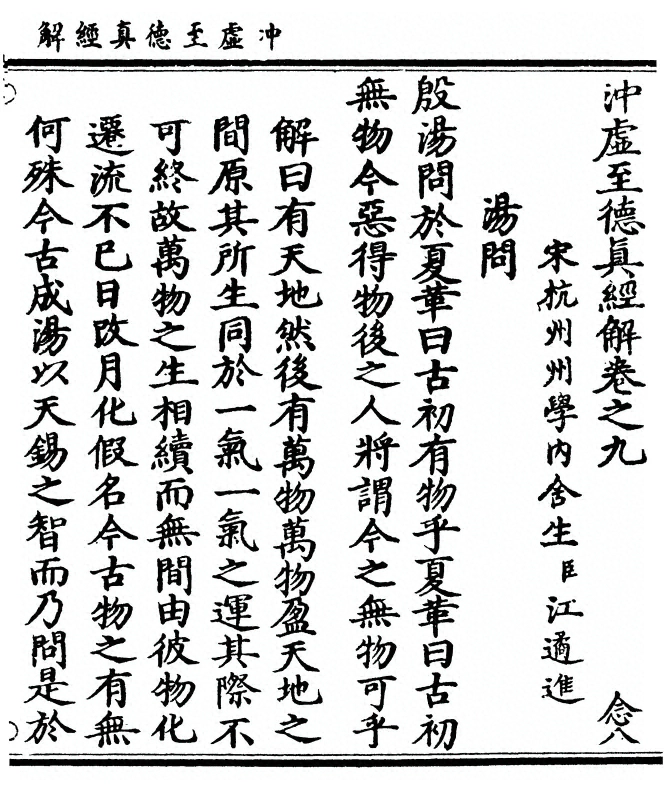 沖虛至德真經解
沖虛至德眞經解卷之九 念八
宋杭州州學內舍生臣江遹進
湯問
殷湯問於夏革曰古初有物乎夏革曰古初
無物今惡得物後之人將謂今之無物可乎
解曰有天地然後有萬物萬物盈天地之
間原其所生同於一氣一氣之運其際不
可終故萬物之生相續而無間由彼物化
遷流不已日改月化假名今古物之有無
何殊今古成湯以天錫之智而乃問是於